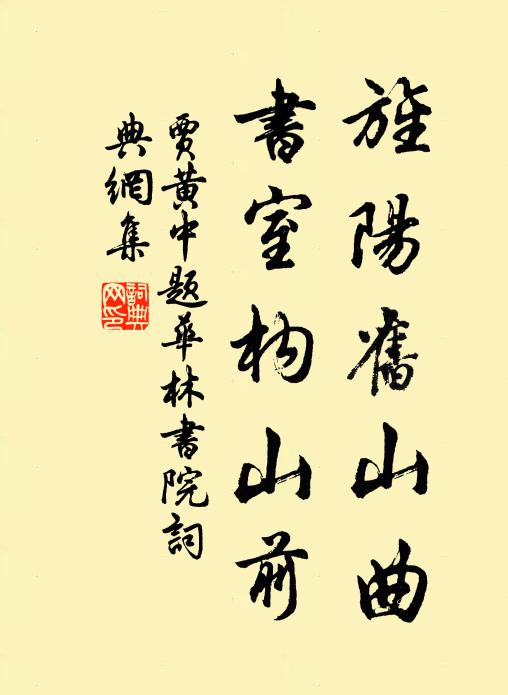 旌陽舊山曲
書室枃山前
賈黃中題華林書院詞
典網集
詞典網印